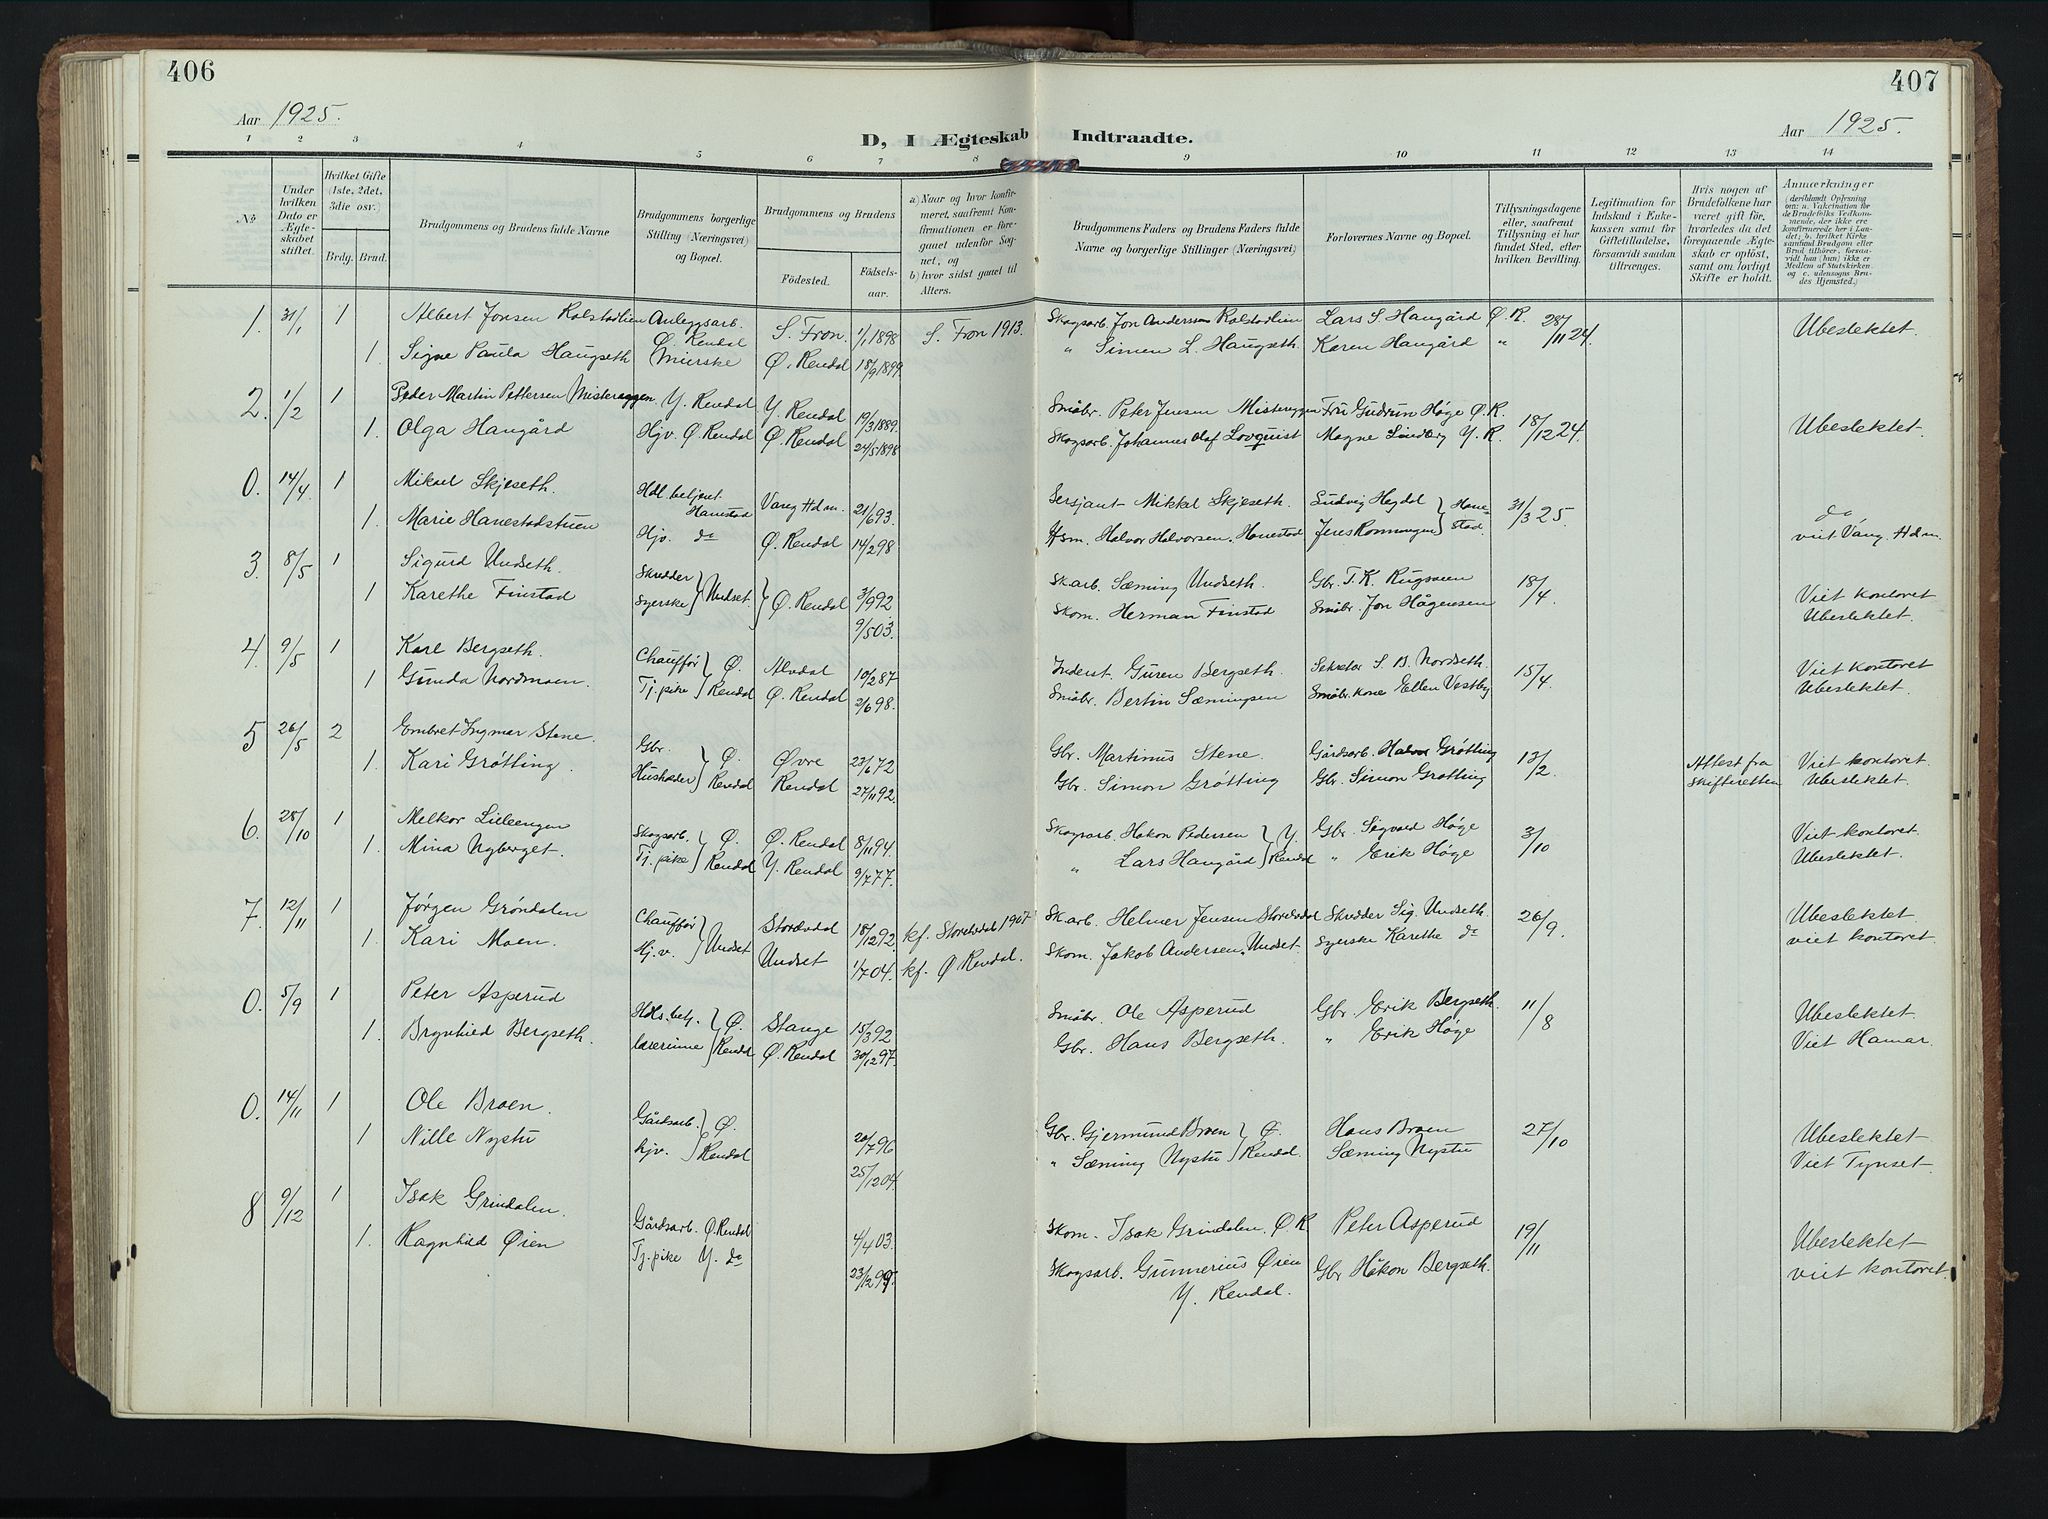 406
407
Aar 1925.
D, I Ægteskab Indtraadte.
Aar 1925.
1 2 3 4 5 6 7 8 9 10 11 12 13 14
No
Under hvilken Dato er Ægteskabet stiftet.
Hvilket Gifte (1ste, 2det, 3die osv.)
Brdg. Brud.
Brudgommens og Brudens fulde Navne
Brudgommens borgerlige Stilling (Næringsvei) og Bopæl.
Brudgommens og Brudens
Fødested.
Fødselsaar.
a) Naar og hvor konfirmeret, saafremt Konfirmationen er foregaaet udenfor Sognet, og
b) hvor sidst gaaet til Alters.
Brudgommens Faders og Brudens Faders fulde Navne og borgerlige Stillinger (Næringsvei)
Forlovernes Navne og Bopæl.
Tillysningsdagene eller, saafremt Tillysning ei har fundet Sted, efter hvilken Bevilling.
Legitimation for Indskud i Enkekassen samt for Giftetilladelse, forsaavidt saadan tiltrænges.
Hvis nogen af Brudefolkene har været gift før, hvorledes da det foregaaende Ægteskab er opløst, samt om lovligt Skifte er holdt.
Anmærkninger (deriblandt Oplysning om: a. Vakcination for de Brudefolks Vedkommende, der ikke ere konfirmerede her i Landet; b. hvilket Kirkesamfund Brudgom eller Brud tilhører, forsaavidt han (hun) ikke er Medlem af Statskirken og c. udensogns Brudes Hjemsted.)
1. 31/1 1 Albert Jonsen Rolstadlien Anleggsarb. Ø. Rendal S. Fron. 1/1 1898 S. Fron 1913. Skogsarb. Jon Anderssen Rolstadlien Lars S. Haugård Ø. R. 28/11 24. Ubeslektet.
1. Signe Paula Haugseth Ø. Rendal 18/9 1899. " Simen L. Haugseth. Karen Haugård "
2. 1/2 1 Peder Martin Pettersen Mistereggen Y. Rendal Y. Rendal 19/3 1889. Småbr. Peter Jensen Mistereggen Fru Gudrun Høge Ø. R. 18/12 24. Ubeslektet.
1. Olga Haugård Hjv. Ø. Rendal Ø. Rendal 24/5 1898 Skogsarb. Johannes Olaf Lovquist Magne Lindberg Y. R.
0. 14/4 1 Mikael Skjeseth. Hdl. betjent Hanestad Vang Hdm. 21/6 93. Sersjant Mikkel Skjeseth. Ludvig Heydal } Hanestad. 31/3 25. do
1. Marie Hanestadstuen Hjv. do Ø. Rendal 14/2 98 Hsm. Halvor Halvorsen, Hanestad Jens Ronningen viet Vang. Hdm.
3. 8/5 1 Sigurd Undseth. Skredder } Undset } Ø. Rendal 3/9 92 Skarb. Sæming Undseth. Gbr. T. K. Rugsveen 18/4 Viet kontoret
1 Karethe Finstad Syerske 9/5 03. Skom. Herman Finstad Småbr. Jon Hågensen Ubeslektet.
4. 9/5 1 Karl Bergseth. Chauffør } Ø. Rendal Alvdal 10/2 87 Indent. Guren Bergseth. Sekretær S. B. Nordseth. 15/4. Viet kontoret
1 Gunda Nordmoen. Tj. pike Ø. Rendal 2/6 98. Småbr. Bertin Sæmingsen Småbr. kone Ellen Vestby Ubeslektet.
5 26/5 2 Embret Ingmar Stene. Gbr. } Ø. Rendal Øvre Rendal 23/6 72 Gbr. Martinus Stene. Gårdsarb. Halvor Grøtting 13/2. Attest fra Skifteretten Viet kontoret.
1. Kari Grøtting. Husholder 27/11 92. Gbr. Simon Grøtting Gbr. Simon Grøtting Ubeslektet.
6. 28/10 1 Melkor Lilleengen Skogsarb. } Ø. Rendal Ø. Rendal 8/11 94. Skogsarb. Hakon Pedersen } Y. Rendal Gbr. Sigvald Høge 3/10 Viet kontoret
1. Mina Nyberget. Tj. pike Y. Rendal 9/7 77. " Lars Haugård " Erik Høge Ubeslektet.
7. 12/11 1 Jørgen Grøndalen Chauffør } Undset Storelvdal 18/12 92 kf. Storelvdal 1907 Skarb. Helmer Jensen Storelvdal Skredder Sig. Undseth. 26/9. Ubeslektet
1. Kari Moen. Hj.v. Undset 1/7 04. kf. Ø Rendal. Skom. Jakob Andersen, Undset. Syerske Karethe do viet kontoret.
0. 5/9 1 Peter Asperud Hdls. betj. } Ø. Rendal Stange 15/3 92 Småbr. Ole Asperud Gbr. Erik Bergseth. 11/8 Ubeslektet.
1. Brynhild Bergseth. lærerinne Ø. Rendal 30/12 97. Gbr. Hans Bergseth. " Erik Høge Viet Hamar.
0. 14/11 1 Ole Broen. Gårdsarb. } Ø. Rendal 20/7 96 Gbr. Gjermund Broen } Ø. Rendal. Hans Broen 27/10 Ubeslektet
1 Nille Nystu hjv. 25/12 04. " Sæming Nystu Sæming Nystu Viet Tynset.
8 9/12 1 Isak Grindalen. Gårdsarb. Ø. Rendal 4/4 03. Skom. Isak Grindalen, Ø R. Peter Asperud 19/11 Ubeslektet
1. Ragnhild Øien Tj. pike Y. do 23/12 99. Skogsarb. Gunnerius Øien Y. Rendal. Gbr Håkon Bergseth. viet kontoret.